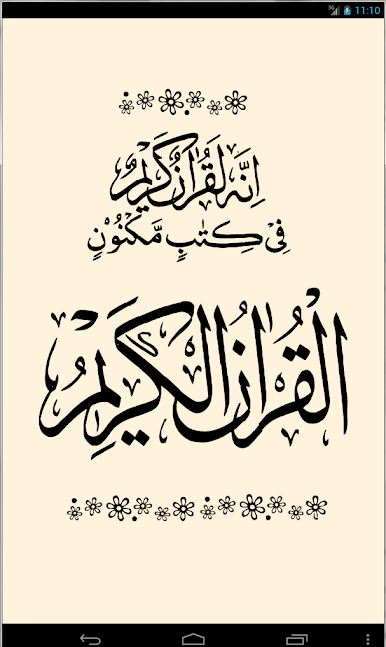 3G 11:10
اِنَّهٗ لَقُرْاٰنٌ كَرِيْمٌ
فِيْ كِتٰبٍ مَّكْنُوْنٍ
الْقُرْاٰنُ الْكَرِيْمُ